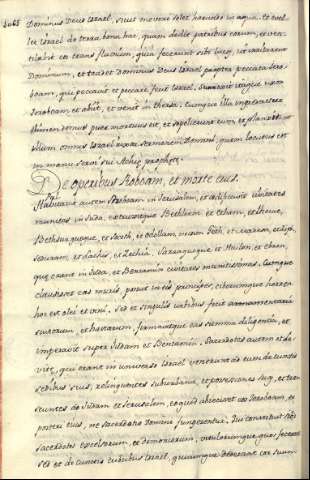 Dominus Deus Israel, sicut moveri solet harundo in aqua, et evel-
let Israel de terra bona hac, quam dedit patribus eorum, et ven-
tilabit eos trans flumen, quia fecerunt sibi lucos, ut irritarent
Dominum, et tradet Dominus Deus Israel propter peccata Jero-
boam, qui peccavit et peccare fecit Israel. Surrexit itaque uxor
Jeroboam et abiit, et venit in Thersa: cumque illa ingrederetur
limen domus puer mortuus est, et sepelierunt eum, et planxit
illum omnis Israel juxta sermonem Domini, quem locutus est
in manu servi sui Achiæ prophetæ.
De operibus Roboam, et morte eius.
Habitavit autem Roboam in Jerusalem, et ædificavit civitates
muratas in Juda, extruxitque Bethleem et Etham, et Thecue,
Bethsur quoque, et Soccho, et Odollam, necnon Geth, et Maresa, et Ziph,
Aduram, et Lachis, et Azecha, Saraa quoque et Hailon, et Ebron,
quæ erant in Juda, et Benjamin civitates munitissimas. Cumque
clausisset eas muris, posuit in eis principes, ciborumque horrea
hoc est olei et vini, sed et singulis urbibus fecit armamentaria
scutorum, et hastarum, firmavitque eas summa diligentia, et
imperavit super Judam et Benjamin. Sacerdotes autem et Le-
vitæ, qui erant in universo Israel venerunt ad eum de cunctis
sedibus suis, relinquentes suburbana, et possessiones suas, et trans-
euntes ad Judam, et Jerusalem, eo quod abiecisset eos Jeroboam, et
posteri eius, ne sacerdotio Domini fungerentur. Qui constituit sibi
sacerdotes excelsorum, et dæmoniorum, vitulorumque quos fecerat
sed et de cunctis tribubus Israel, quicumque dederant cor suum